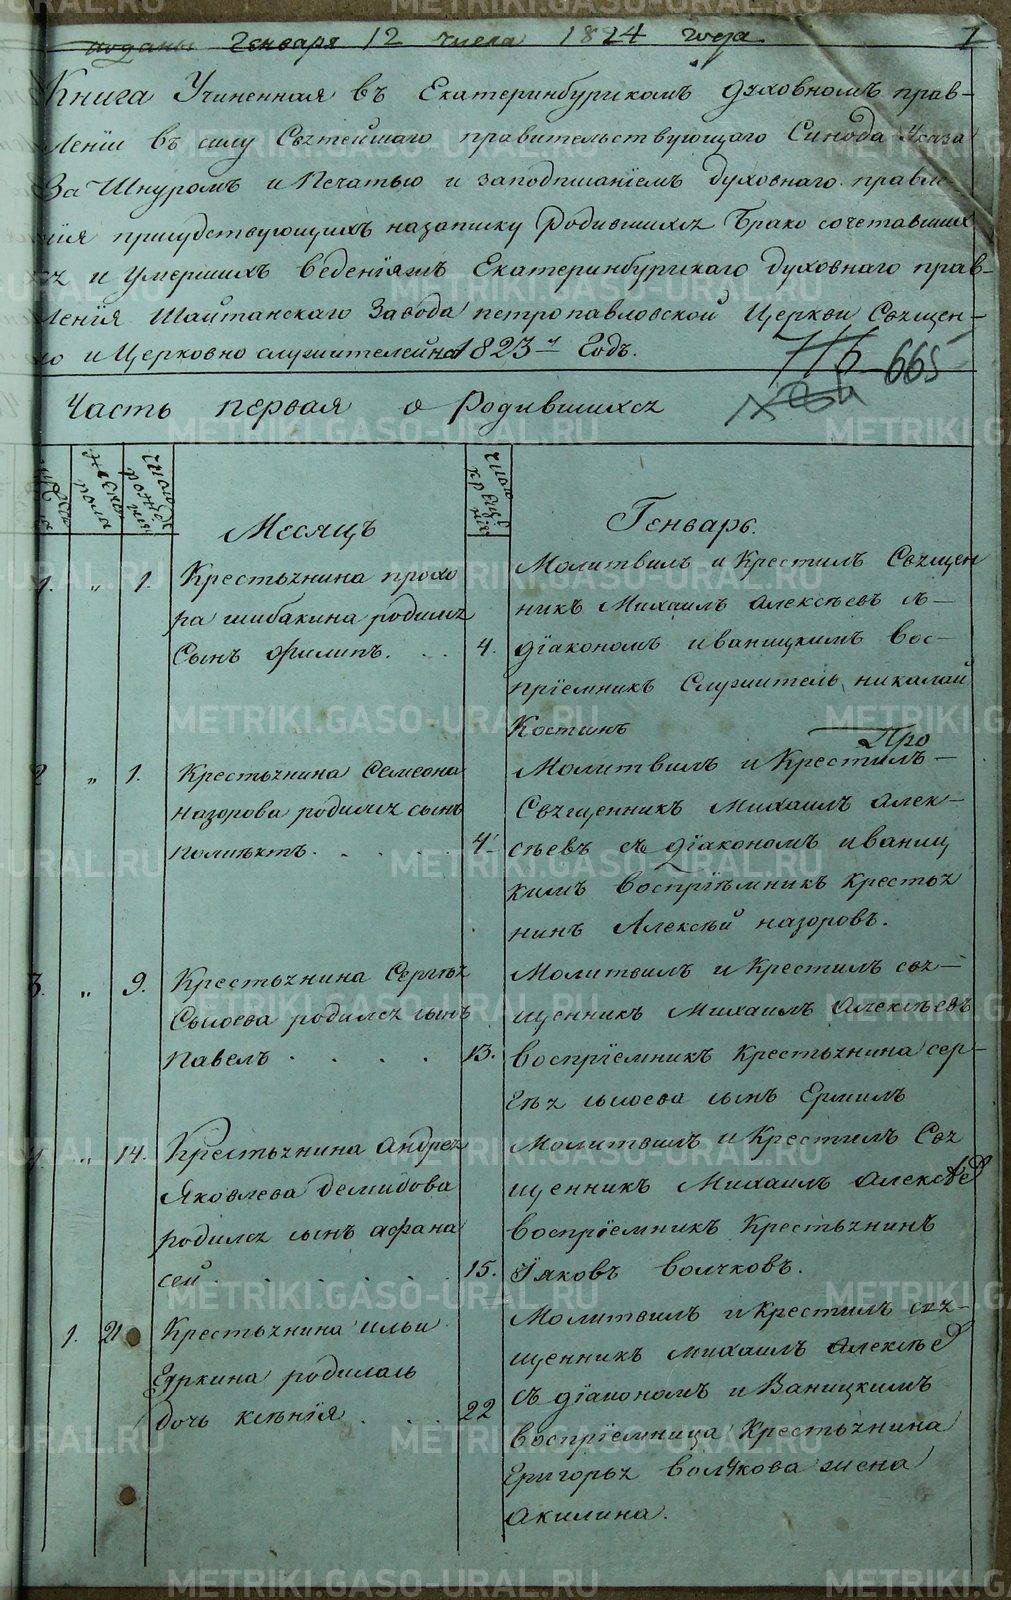 поданы Генваря 12 числа 1824 года
1
Книга Учиненная въ Екатеринбургскомъ духовномъ прав-
леніи въ силу Свѧтейшаго правительствующаго Синода Указа
За Шнуромъ и Печатью и заподписаніемъ духовнаго правле-
нія присудствующихъ назаписку Родившихсѧ Брако сочетавших
сѧ и умершихъ веденіямъ Екатеринбургскаго духовнаго прав-
ленія Шайтанскаго Завода петропавловской Церкви Свѧщен-
но и Церковно служителей на 1823-й Годъ.
665
Часть первая о Родившихсѧ
мужеска
женска пола
число рожденія
Месяцъ
число крещенія
Генварь.
1. „ 1. Крестьѧнина прохо
ра шибакина родилсѧ
Сынъ филипъ. . .
4.
Молитвилъ и Крестилъ Свѧщен
никъ Михаилъ алексѣевъ съ
діакономъ иваницкимъ вос-
пріемникъ Служитель николай
Костинъ
2 „ 1. Крестьѧнина Семеона
назорова родилсѧ сынъ
полиѣктъ. . . . .
4.
Молитвилъ и Крестилъ
Свѧщенникъ михаилъ алек-
сѣевъ съ діакономъ иваниц
кимъ воспріѣмникъ крестьѧ
нинъ Алексѣй назоровъ.
3. „ 9. Крестьѧнина Сергѣѧ
Сысоева родилсѧ сынъ
павелъ . . . .
13.
Молитвилъ и Крестилъ свѧ-
щенникъ михаилъ алексѣевъ
воспріемникъ крестьѧнина сер-
гѣѧ сысоева сынъ Ермилъ
4. „ 14. Крестьѧнина андреѧ
Яковлева демидова
родилсѧ сынъ афана
сей . . . . . .
15.
Молитвилъ и Крестилъ Свѧ
щенникъ Михаилъ алексѣев
воспріемникъ Крестьѧнинъ
Іяковъ волчковъ.
1. 21 Крестьѧнина ильи
Еркина родилась
дочь ксѣнія . . .
22
Молитвилъ и Крестилъ свѧ-
щенникъ михаилъ алексѣев
съ діакономъ иВаницкимъ
воспріемница Крестьѧнина
Григорьѧ волчкова жена
акилина.
METRIKI.GASO-URAL.RU